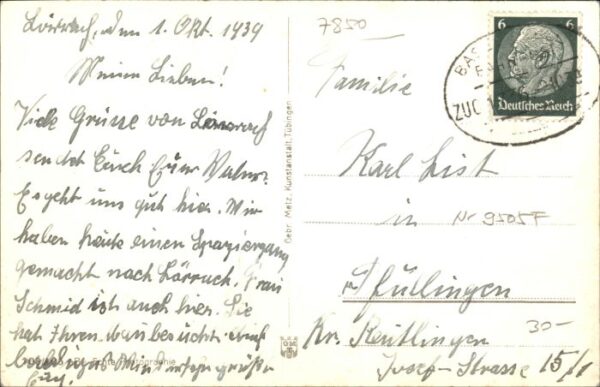 Lörrach, den 1. Okt. 1939
Meine Lieben!
Viele Grüsse von Lörrach
sendet Euch Euer
Es geht uns gut hier. Wir
haben heute einen Spaziergang
gemacht nach Lörrach. Frau
Schmid ist auch hier. Sie
hat Ihren besucht.
Gebr. Metz, Kunstanstalt, Tübingen
7850
6 6
Deutsches Reich
BAS
ZUG
Familie
Karl List
in
Nr 9505 F
Pfullingen
30-
Kr. Reutlingen
Josef-Strasse 15/1